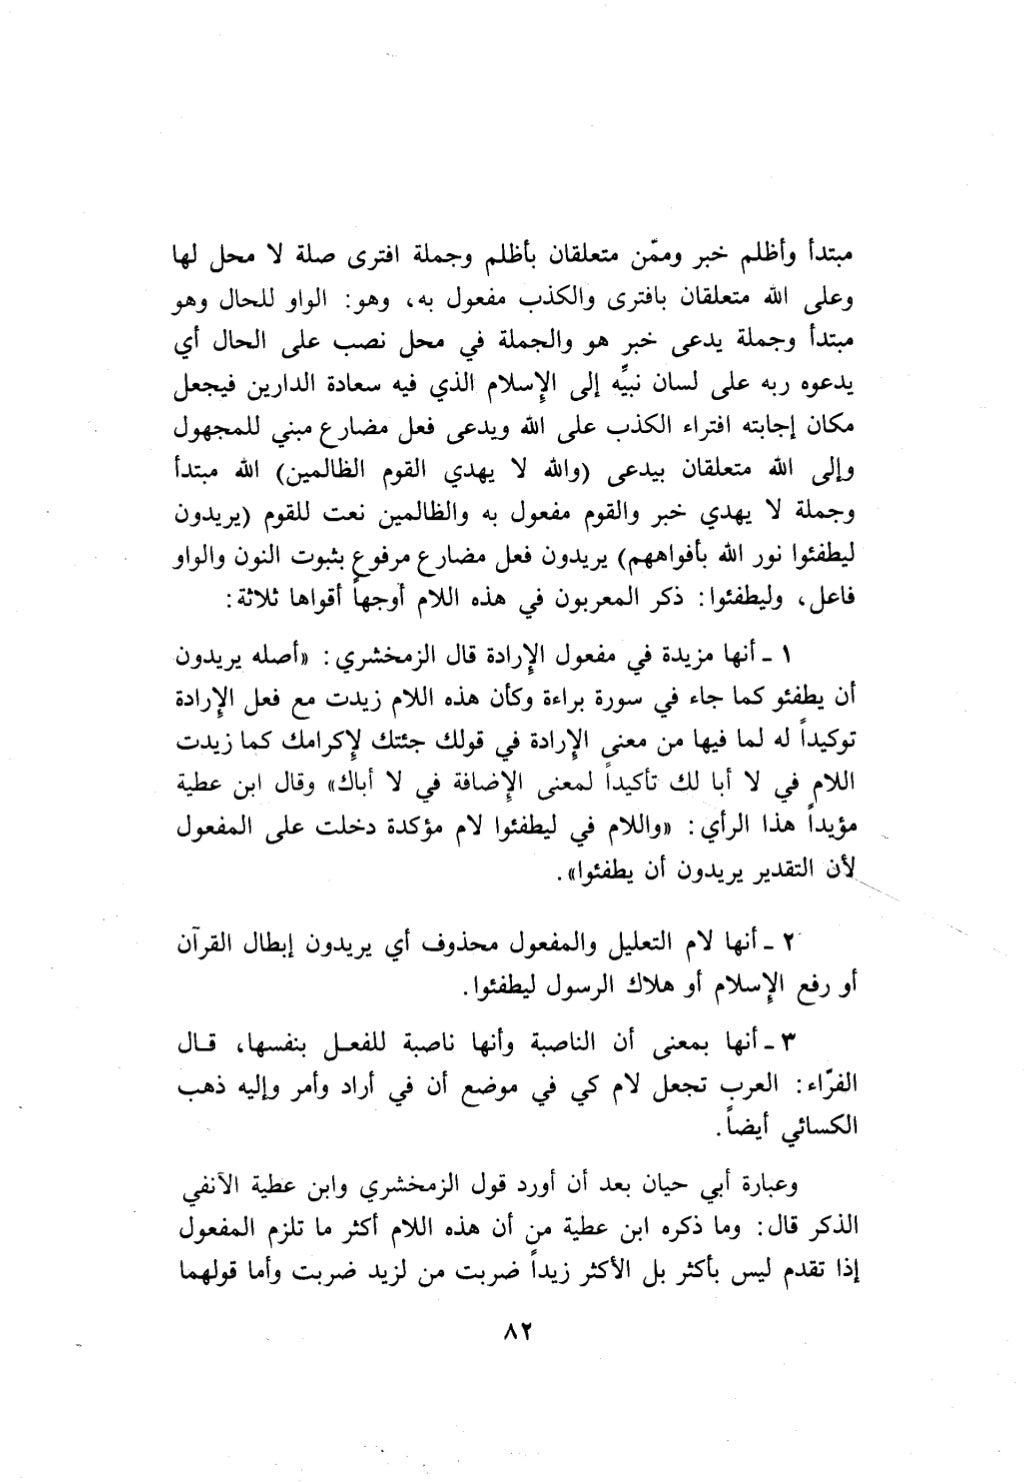 مبتدأ وأظلم خبر وممّن متعلقان بأظلم وجملة افترى صلة لا محل لها
وعلى الله متعلقان بافترى والكذب مفعول به، وهو: الواو للحال وهو
مبتدأ وجملة يدعى خبر هو والجملة في محل نصب على الحال أي
يدعوه ربه على لسان نبيِّه إلى الإسلام الذي فيه سعادة الدارين فيجعل
مكان إجابته افتراء الكذب على الله ويدعى فعل مضارع مبني للمجهول
وإلى الله متعلقان بيدعى (والله لا يهدي القوم الظالمين) الله مبتدأ
وجملة لا يهدي خبر والقوم مفعول به والظالمين نعت للقوم (يريدون
ليطفئوا نور الله بأفواههم) يريدون فعل مضارع مرفوع بثبوت النون والواو
فاعل، وليطفئوا: ذكر المعربون في هذه اللام أوجهاً أقواها ثلاثة:
١ ـ أنها مزيدة في مفعول الإرادة قال الزمخشري: «أصله يريدون
أن يطفئو كما جاء في سورة براءة وكأن هذه اللام زيدت مع فعل الإرادة
توكيداً له لما فيها من معنى الإرادة في قولك جئتك لإكرامك كما زيدت
اللام في لا أبا لك تأكيداً لمعنى الإضافة في لا أباك» وقال ابن عطية
مؤيداً هذا الرأي: «واللام في ليطفئوا لام مؤكدة دخلت على المفعول
لأن التقدير يريدون أن يطفئوا».
٢ ـ أنها لام التعليل والمفعول محذوف أي يريدون إبطال القرآن
أو رفع الإسلام أو هلاك الرسول ليطفئوا.
٣ ـ أنها بمعنى أن الناصبة وأنها ناصبة للفعل بنفسها، قال
الفرّاء: العرب تجعل لام كي في موضع أن في أراد وأمر وإليه ذهب
الكسائي أيضاً.
وعبارة أبي حيان بعد أن أورد قول الزمخشري وابن عطية الآنفي
الذكر قال: وما ذكره ابن عطية من أن هذه اللام أكثر ما تلزم المفعول
إذا تقدم ليس بأكثر بل الأكثر زيداً ضربت من لزيد ضربت وأما قولهما
٨٢